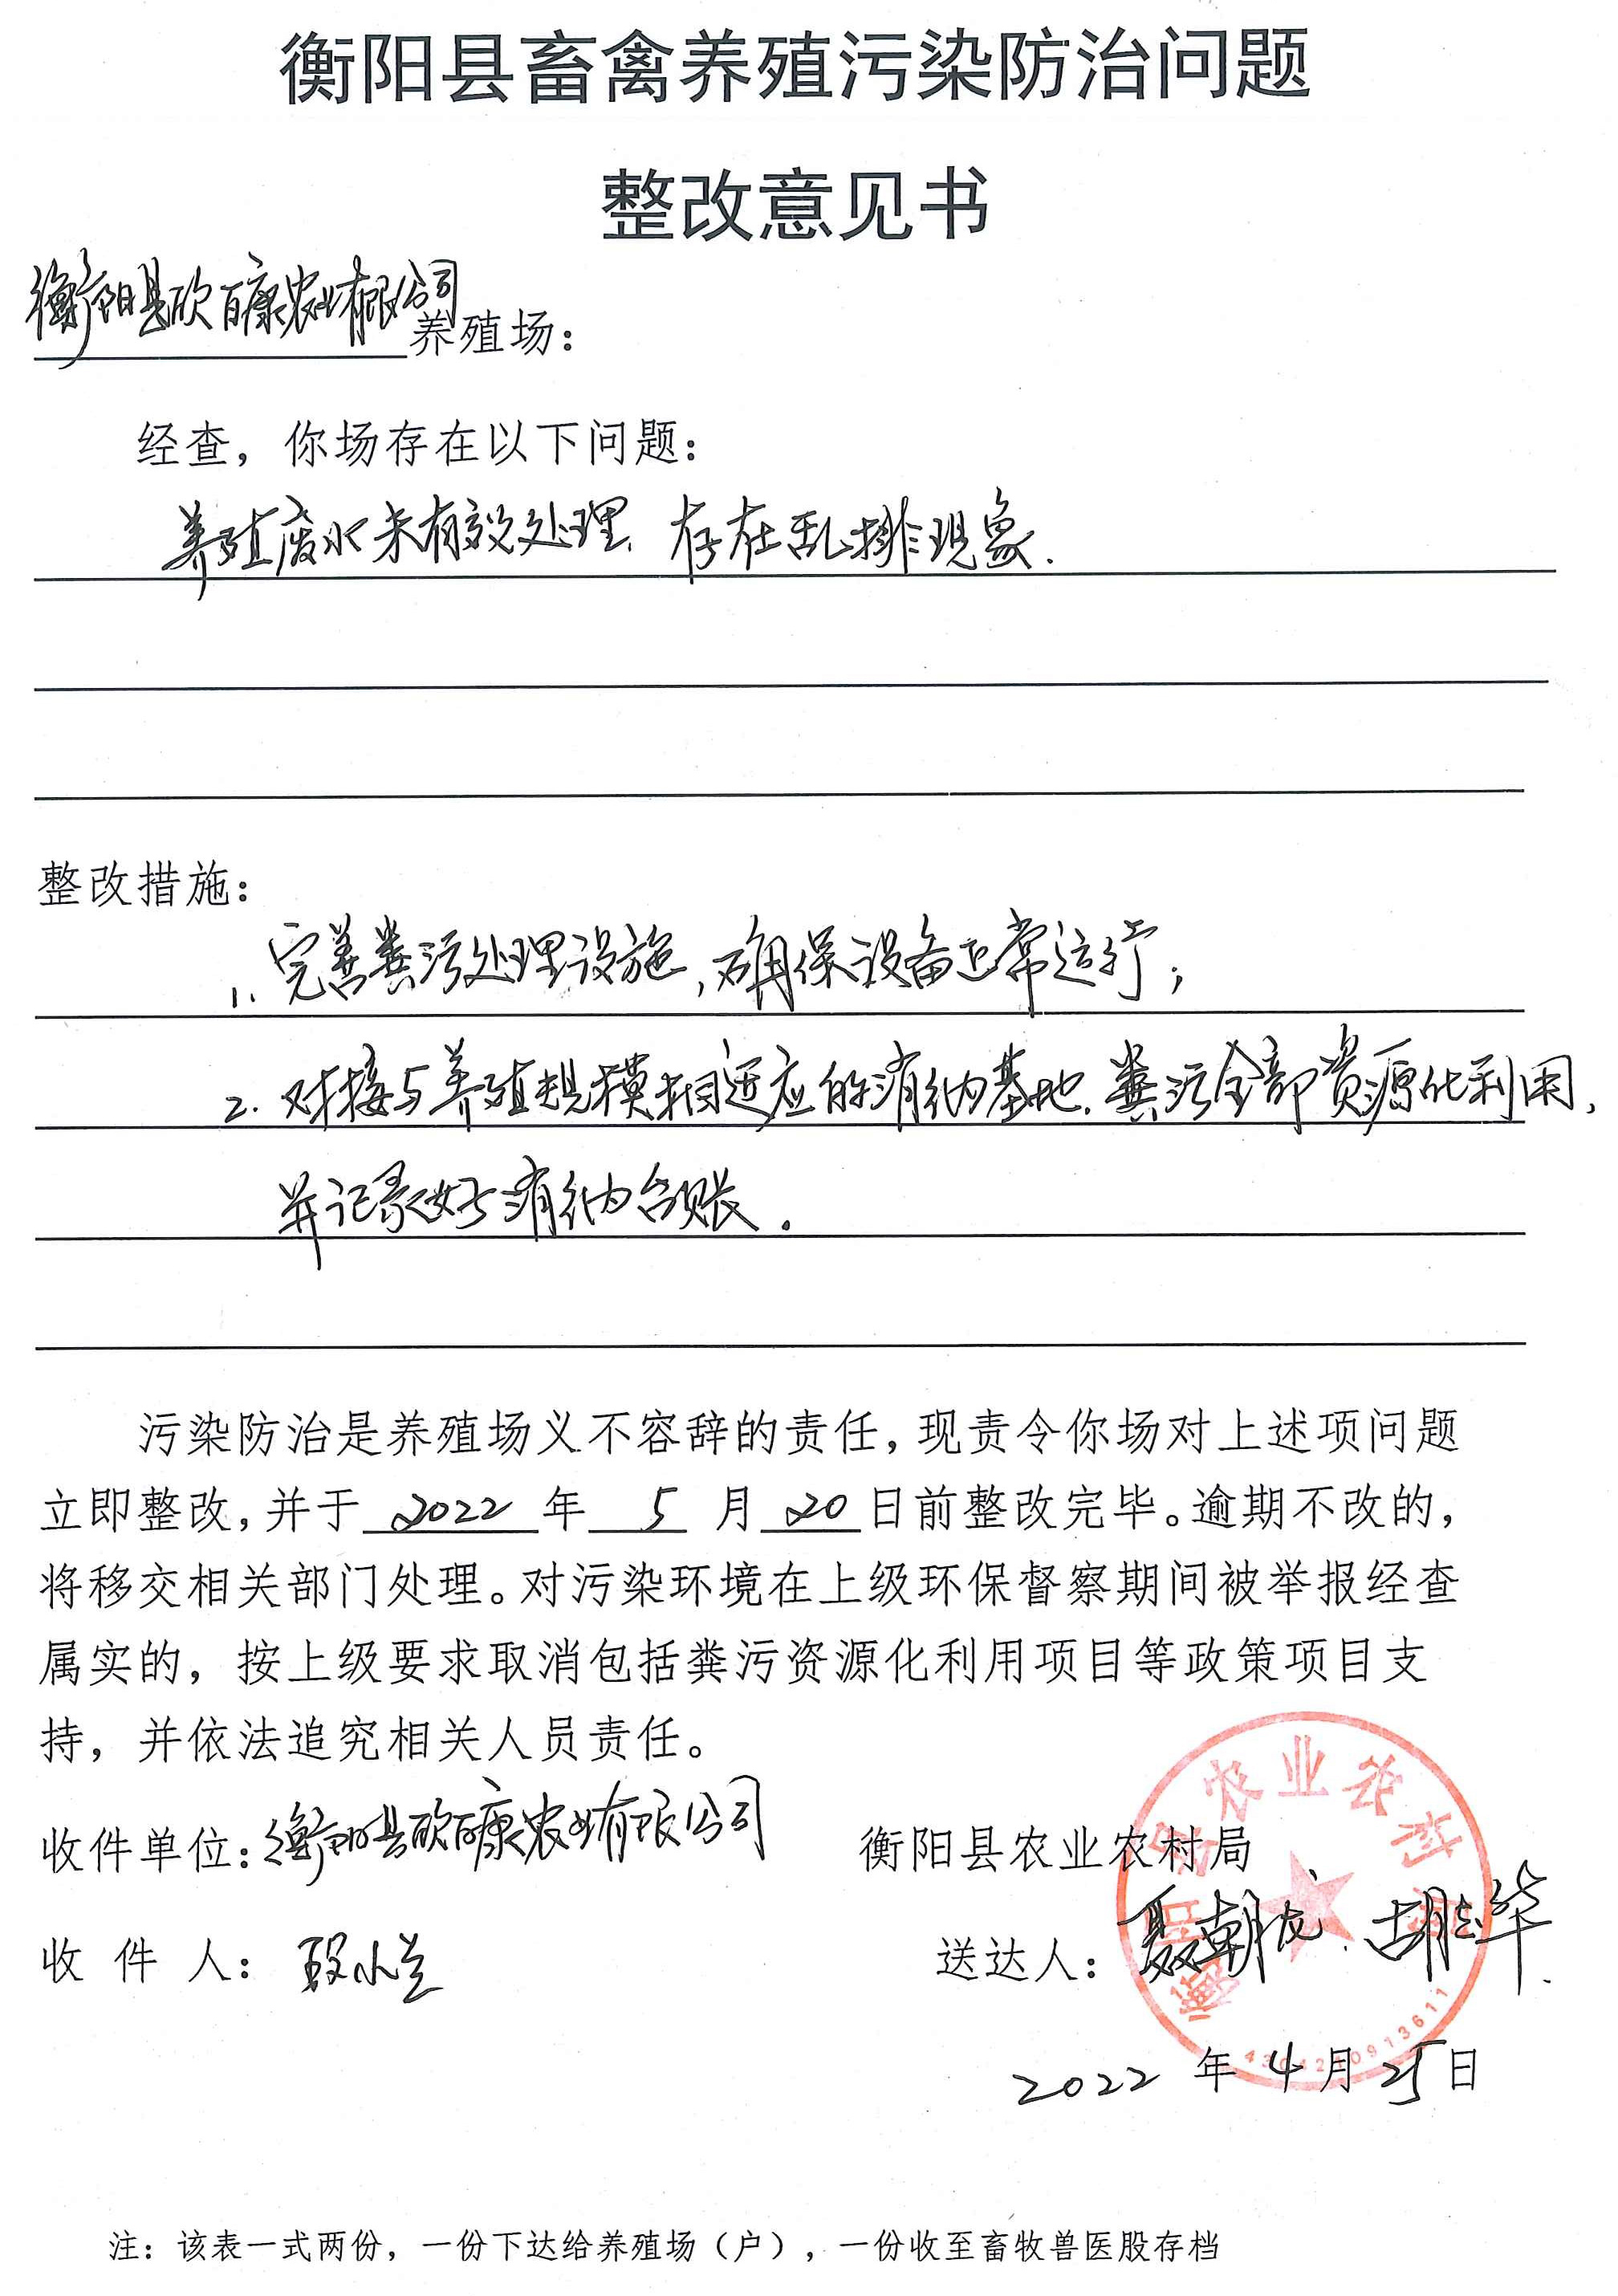 衡阳县畜禽养殖污染防治问题
整改意见书
衡阳县欣百康农业有限公司养殖场：
经查，你场存在以下问题：
养殖废水未有效处理、存在乱排现象.
整改措施：
1. 完善粪污处理设施，确保设备正常运行；
2. 对接与养殖规模相适应的消纳基地.粪污全部资源化利用,
并记录好消纳台账.
污染防治是养殖场义不容辞的责任，现责令你场对上述项问题
立即整改，并于 2022 年 5 月 20 日前整改完毕。逾期不改的，
将移交相关部门处理。对污染环境在上级环保督察期间被举报经查
属实的，按上级要求取消包括粪污资源化利用项目等政策项目支
持，并依法追究相关人员责任。
收件单位：衡阳县欣百康农业有限公司
衡阳县农业农村局
收 件 人：段小兰
送达人：聂朝龙、胡志华.
衡阳县农业农村局
2022 年 4 月 25 日
注：该表一式两份，一份下达给养殖场（户），一份收至畜牧兽医股存档